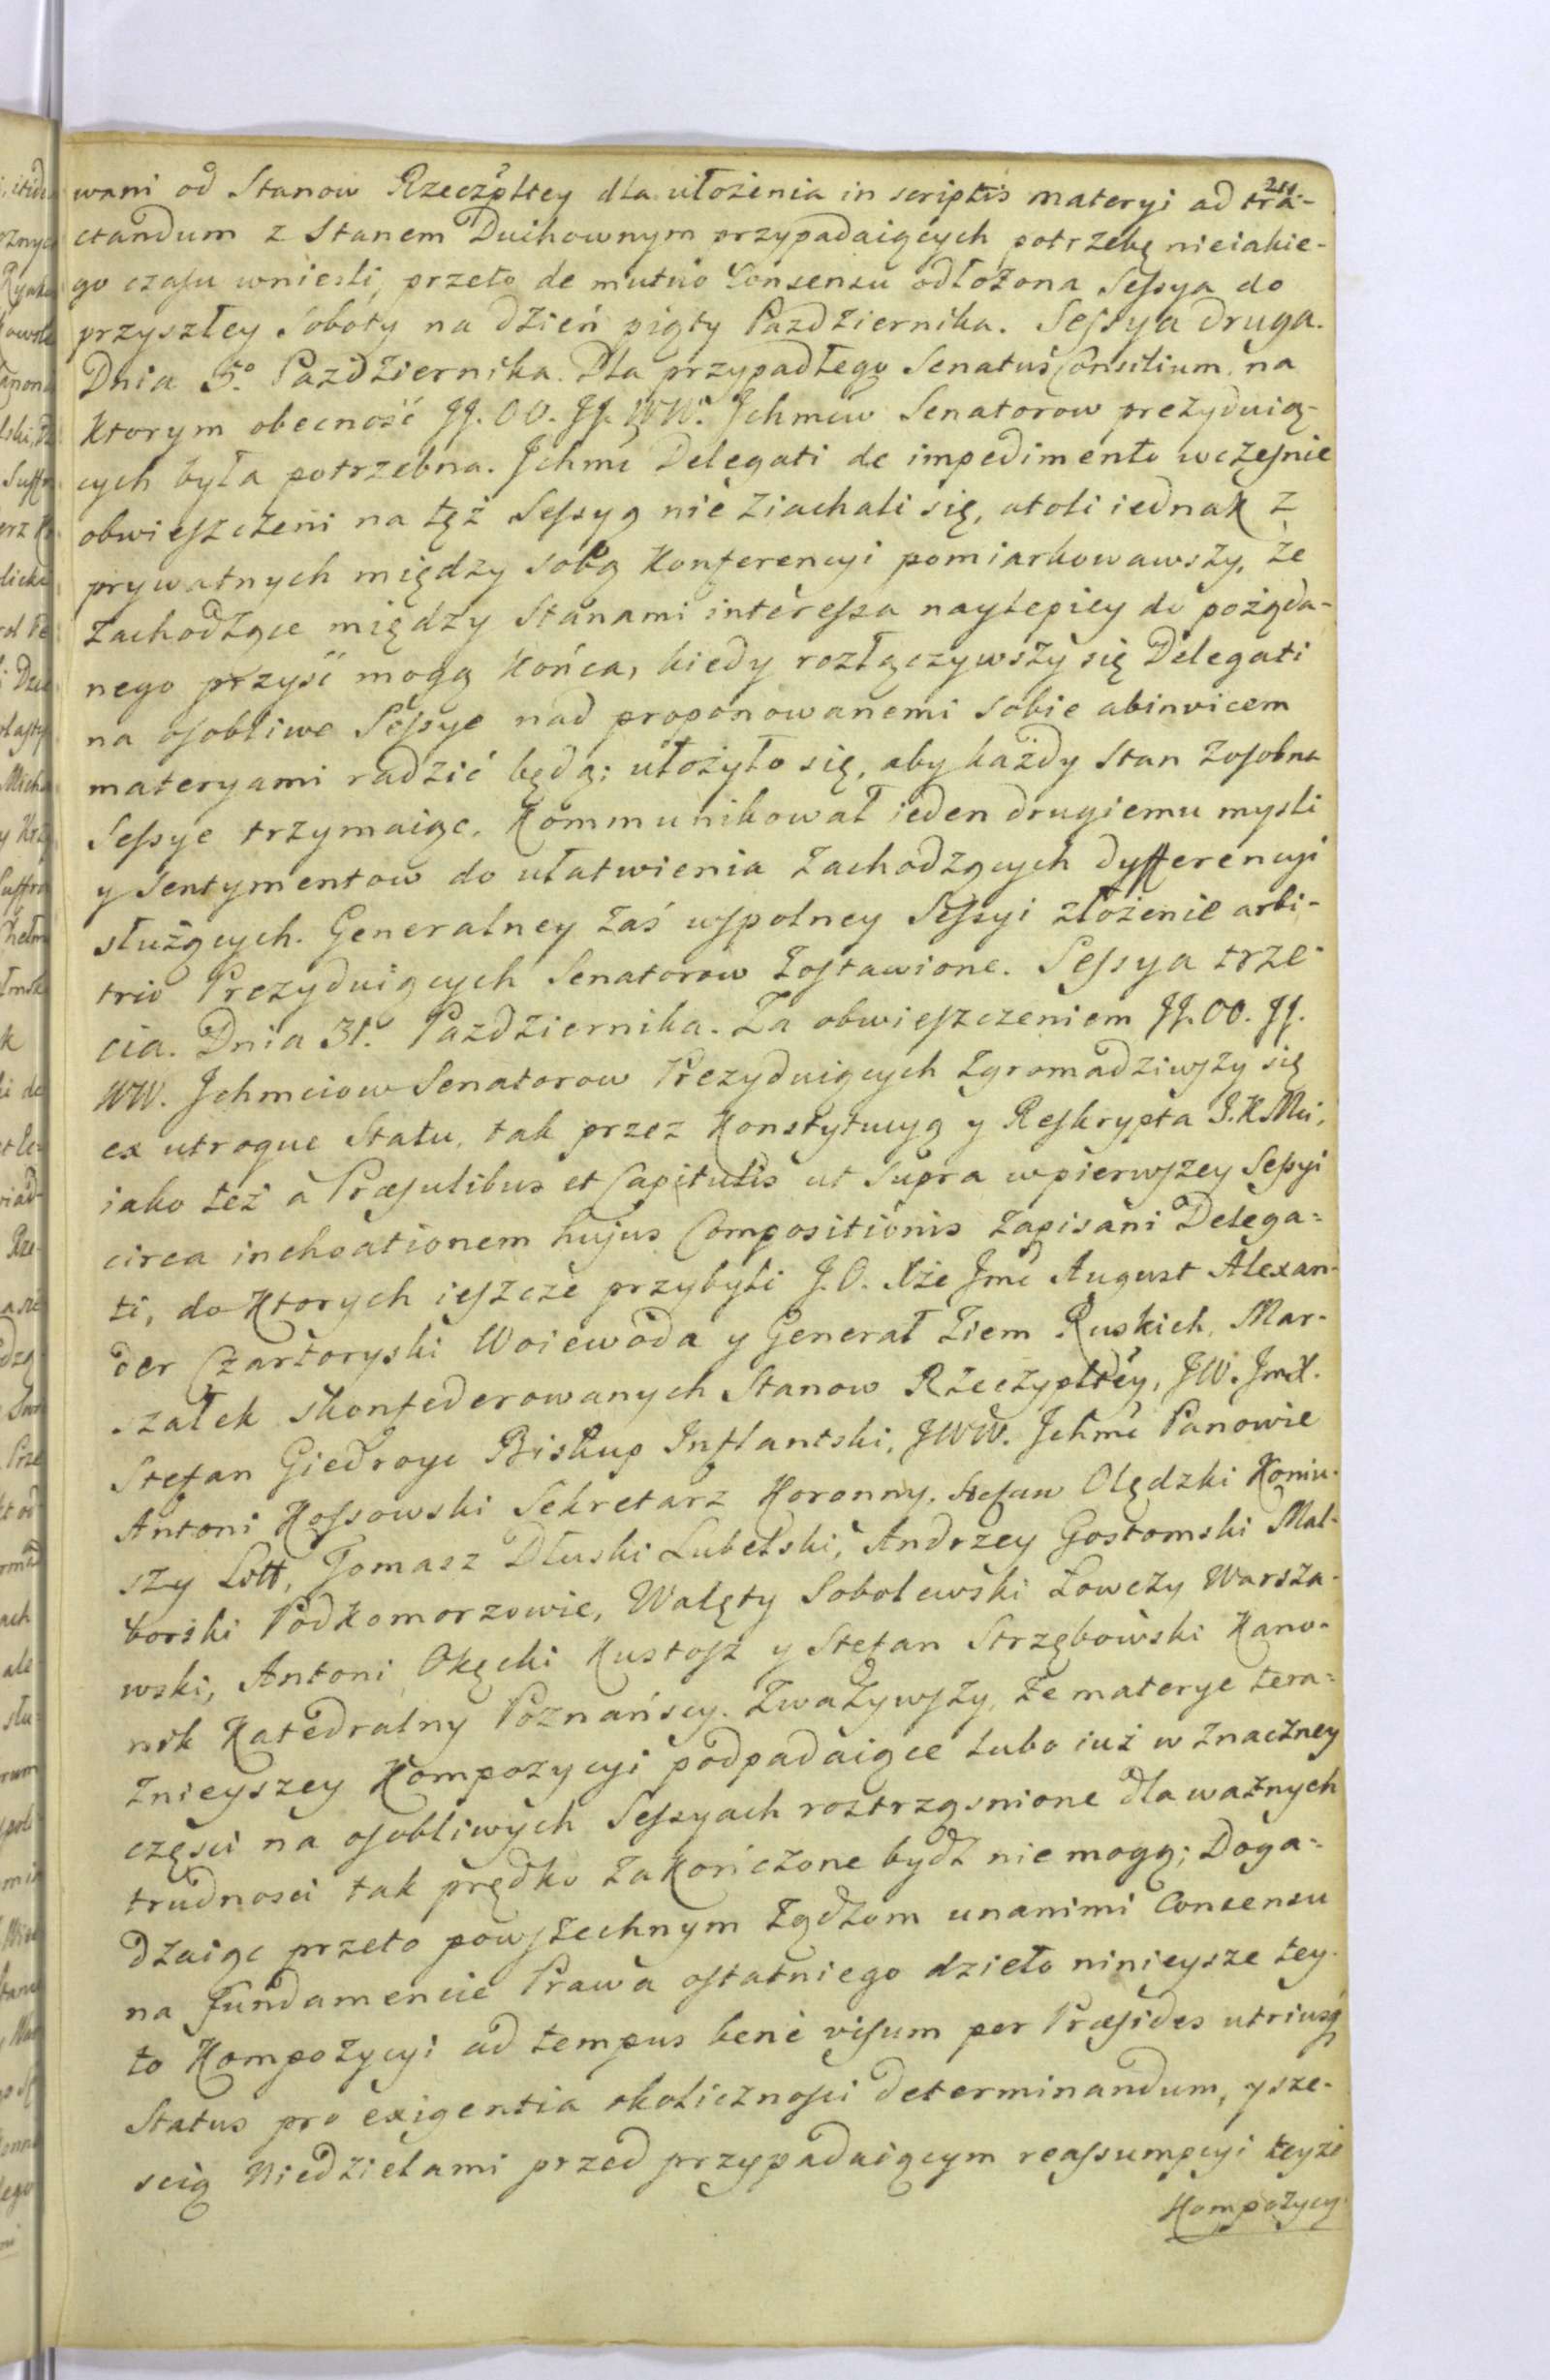 211.
wani od Stanow Rzeczpltey dla ułożenia in scriptis materyi ad tra-
ctandum z Stanem Duchownym przypadaiących potrzebę nieiakie-
go czasu wniesli, przeto de mutuo Consensu odłożona Sessya do
przyszłey Soboty na dzień piąty Pazdziernika. Sessya druga.
Dnia 5º Pazdziernika. Dla przypadłego Senatus Consilium, na
ktorym obecność JJ. OO. JJ. WW. Jchmciw Senatorow prezyduią-
cych była potrzebna. Jchmć Delegati de impedimento wczesnie
obwieszczeni na tęż Sessyą nie ziachali się, atoli iednak z
prywatnych między sobą Konferencyi pomiarkowawszy, że
zachodzące między Stanami interessa naylepiey do pożąda-
nego przyść mogą Końca, kiedy rozłączywszy się Delegati
na osobliwe Sessye nad proponowanemi sobie abinvicem
materyami radzić będą; ułożyło się, aby każdy Stan zosobna
Sessye trzymaiąc, Kommunikował ieden drugiemu mysli
y Sentymentow do ułatwienia zachodzących dyfferencyi
służących. Generalney zaś wspolney Sessyi złożenie arbi-
trio Prezyduiących Senatorow zostawione. Sessya trze-
cia. Dnia 31º Pazdziernika. Za obwieszczeniem JJ. OO. JJ.
WW. Jchmciow Senatorow Prezyduiących zgromadziwszy się
ex utroque Statu, tak przez Konstytucyą y Reskrypta J. K. Mci,
iako też à Præsulibus et Capitulis ut supra w pierwszey Sessyi
circa inchoationem hujus Compositionis zapisani Delega-
ti, do Ktorych ieszcze przybyli J. O. Xże Jmć August Alexan-
der Czartoryski Woiewoda y Generał Ziem Ruskich, Mar-
szałek skonfederowanych Stanow Rzeczypltey, JW. JmX.
Stefan Giedroyc Biskup Inflantski, JWW. Jchmć Panowie
Antoni Kossowski Sekretarz Koronny, Stefan Olędzki Koniu-
szy Litt, Tomasz Dłuski Lubelski, Andrzey Gostomski Mal-
borski Podkomorzowie, Walęty Sobolewski Łowczy Warsza-
wski, Antoni Okęcki Kustosz y Stefan Strzębowski Kano-
nik Katedralny Poznańscy. Zważywszy, że materye tera-
znieyszey Kompozycyi podpadaiące lubo iuż w znaczney
części na osobliwych Sessyach roztrząsnione dla ważnych
trudnosci tak prędko zakończone bydź nie mogą; Doga-
dzaiąc przeto powszechnym żądzom unanimi Consensu
na fundamencie Prawa ostatniego dzieło ninieysze tey-
to Kompozycyi ad tempus bene visum per Præsides utriusq
Status pro exigentia okoliczności determinandum, y sze-
scią Niedzielami przed przypadaiącym reassumpcyi teyże
Kompozycy